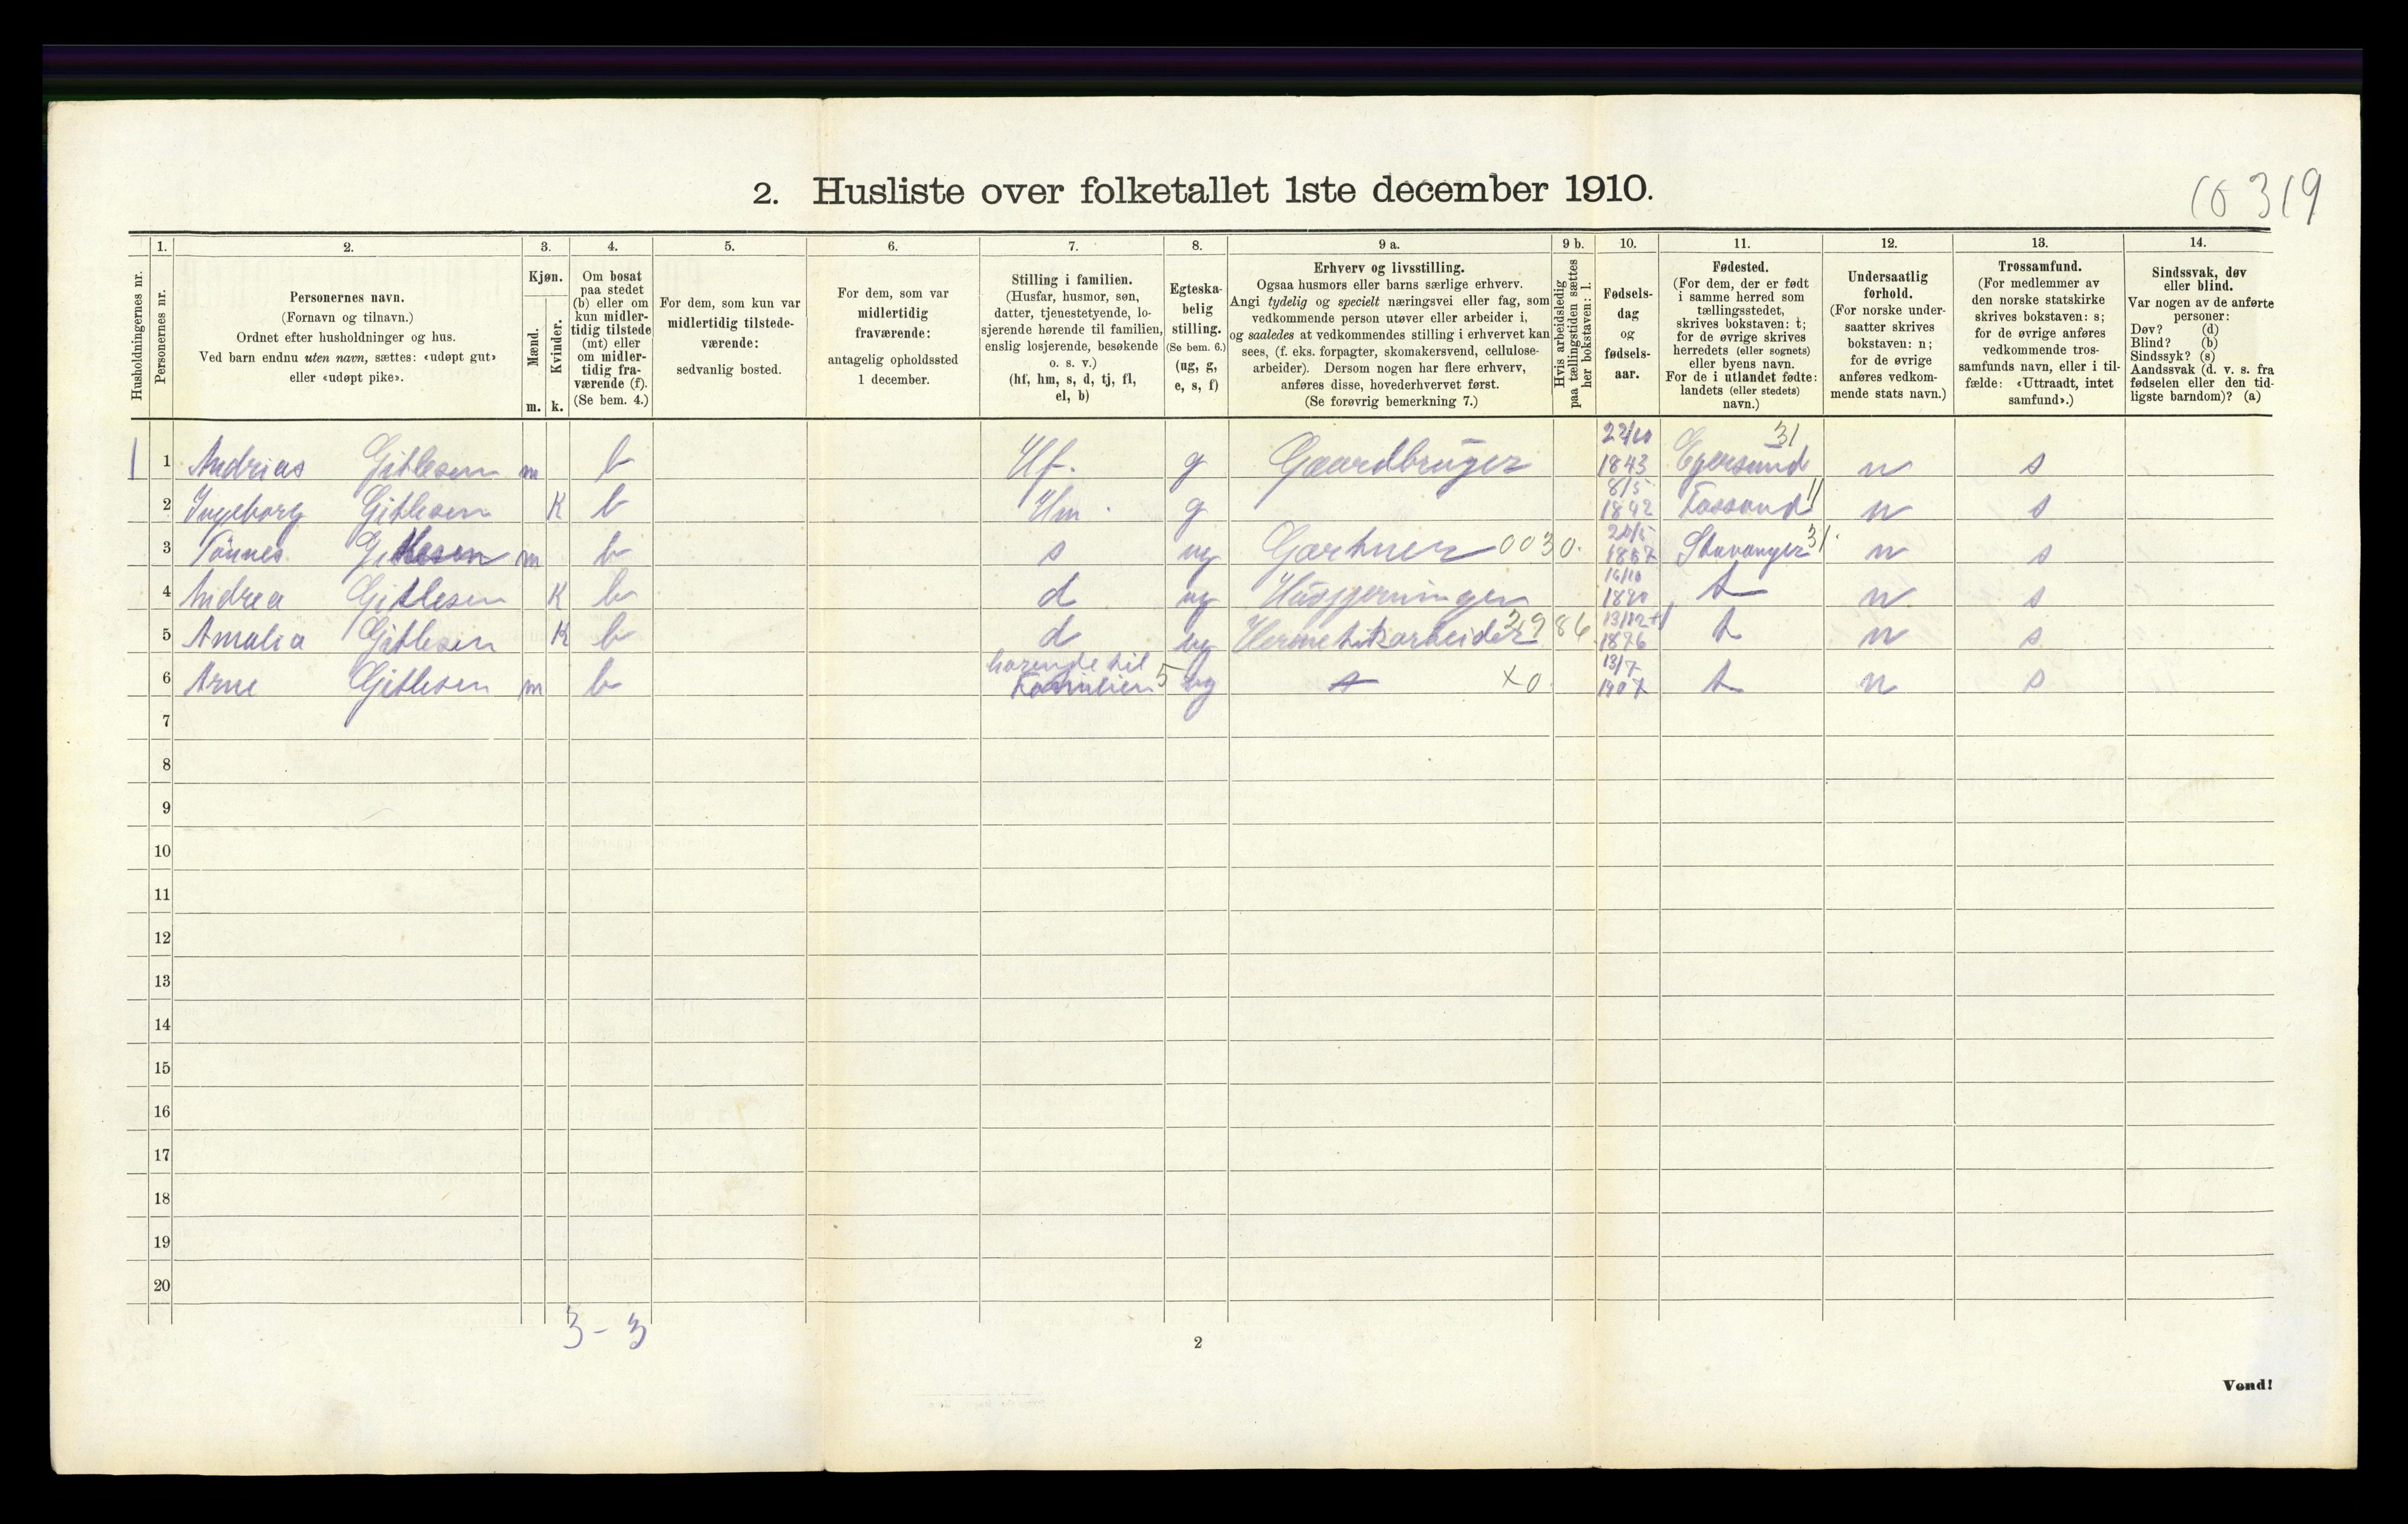 2. Husliste over folketallet 1ste december 1910.
1. 2. 3. 4. 5. 6. 7. 8. 9 a. 9 b. 10. 11. 12. 13. 14.
Husholdningernes nr.
Personernes nr.
Personernes navn.
(Fornavn og tilnavn.)
Ordnet efter husholdninger og hus.
Ved barn endnu uten navn, sættes: «udøpt gut»
eller «udøpt pike».
Kjøn.
Mænd.
Kvinder.
m. k.
Om bosat
paa stedet
(b) eller om
kun midler-
tidig tilstede
(mt) eller
om midler-
tidig fra-
værende (f).
(Se bem. 4.)
For dem, som kun var
midlertidig tilstede-
værende:
sedvanlig bosted.
For dem, som var
midlertidig
fraværende:
antagelig opholdssted
1 december.
Stilling i familien.
(Husfar, husmor, søn,
datter, tjenestetyende, lo-
sjerende hørende til familien,
enslig losjerende, besøkende
o. s. v.)
(hf, hm, s, d, tj, fl,
el, b)
Egteska-
belig
stilling.
(Se bem. 6.)
(ug, g,
e, s, f)
Erhverv og livsstilling.
Ogsaa husmors eller barns særlige erhverv.
Angi tydelig og specielt næringsvei eller fag, som
vedkommende person utøver eller arbeider i,
og saaledes at vedkommendes stilling i erhvervet kan
sees, (f. eks. forpagter, skomakersvend, cellulose-
arbeider). Dersom nogen har flere erhverv,
anføres disse, hovederhvervet først.
(Se forøvrig bemerkning 7.)
Hvis arbeidsledig
paa tællingstiden sættes
her bokstaven: l.
Fødsels-
dag
og
fødsels-
aar.
Fødested.
(For dem, der er født
i samme herred som
tællingsstedet,
skrives bokstaven: t;
for de øvrige skrives
herredets (eller sognets)
eller byens navn.
For de i utlandet fødte:
landets (eller stedets)
navn.)
Undersaatlig
forhold.
(For norske under-
saatter skrives
bokstaven: n;
for de øvrige
anføres vedkom-
mende stats navn.)
Trossamfund.
(For medlemmer av
den norske statskirke
skrives bokstaven: s;
for de øvrige anføres
vedkommende tros-
samfunds navn, eller i til-
fælde: «Uttraadt, intet
samfund».)
Sindssvak, døv
eller blind.
Var nogen av de anførte
personer:
Døv? (d)
Blind? (b)
Sindssyk? (s)
Aandssvak (d. v. s. fra
fødselen eller den tid-
ligste barndom)? (a)
1 1 Andrias Gitlesen m b Hf. g Gaardbruger 1843 Egersund 31 n s
2 Ingeborg Gitlesen K b Hm g 8/5 1842 Fossand 11 n s
3 Tönnes Gitlesen m b s ug Gartner 0030. Stavanger 31 n s
4 Andrea Gitlesen K b d ug Husgjerningen t n s
5 Amalia Gitlesen K b d ug Hermetikarbeider 1876 t n s
6 Arne Gitlesen m b horende til Familien 5 ug s x0 13/7 1907 t n s
7
8
9
10
11
12
13
14
15
16
17
18
19
20
3 - 3
2
Vend!